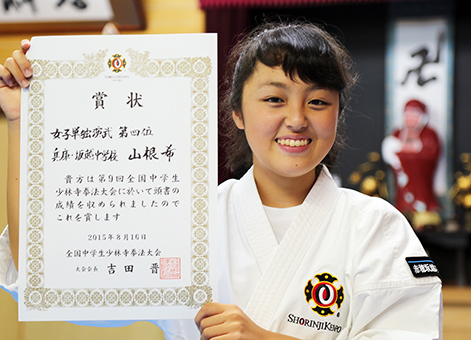 賞状
女子単独演武 第四位
兵庫・坂越中学校 山根 希
貴方は第9回全国中学生
少林寺拳法大会に於いて頭書の
成績を収められましたので
これを賞します
2015年8月16日
全国中学生少林寺拳法大会
大会会長 吉田 晋
SHORINJI KEMPO
卍